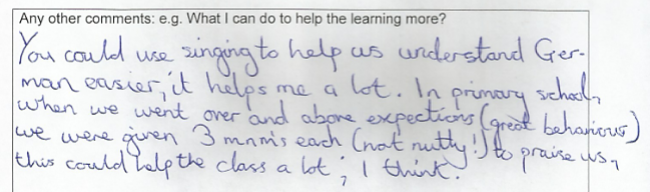 Any other comments: e.g. What I can do to help the learning more?
You could use singing to help us understand Ger-
man easier, it helps me a lot. In primary school,
when we went over and above expections (great behaviour)
we were given 3 mnm's each (not nutty!) to praise us,
this could help the class a lot; I think.